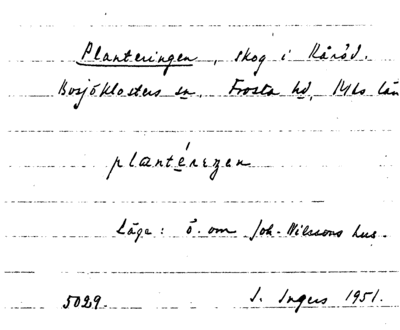 Planteringen, skog i Kåröd.
Bosjöklosters sn. Frosta hd, M-hs län
plantérezen
Läge: ö. om Joh. Nilssons hus.
5029. I. Ingers 1951.